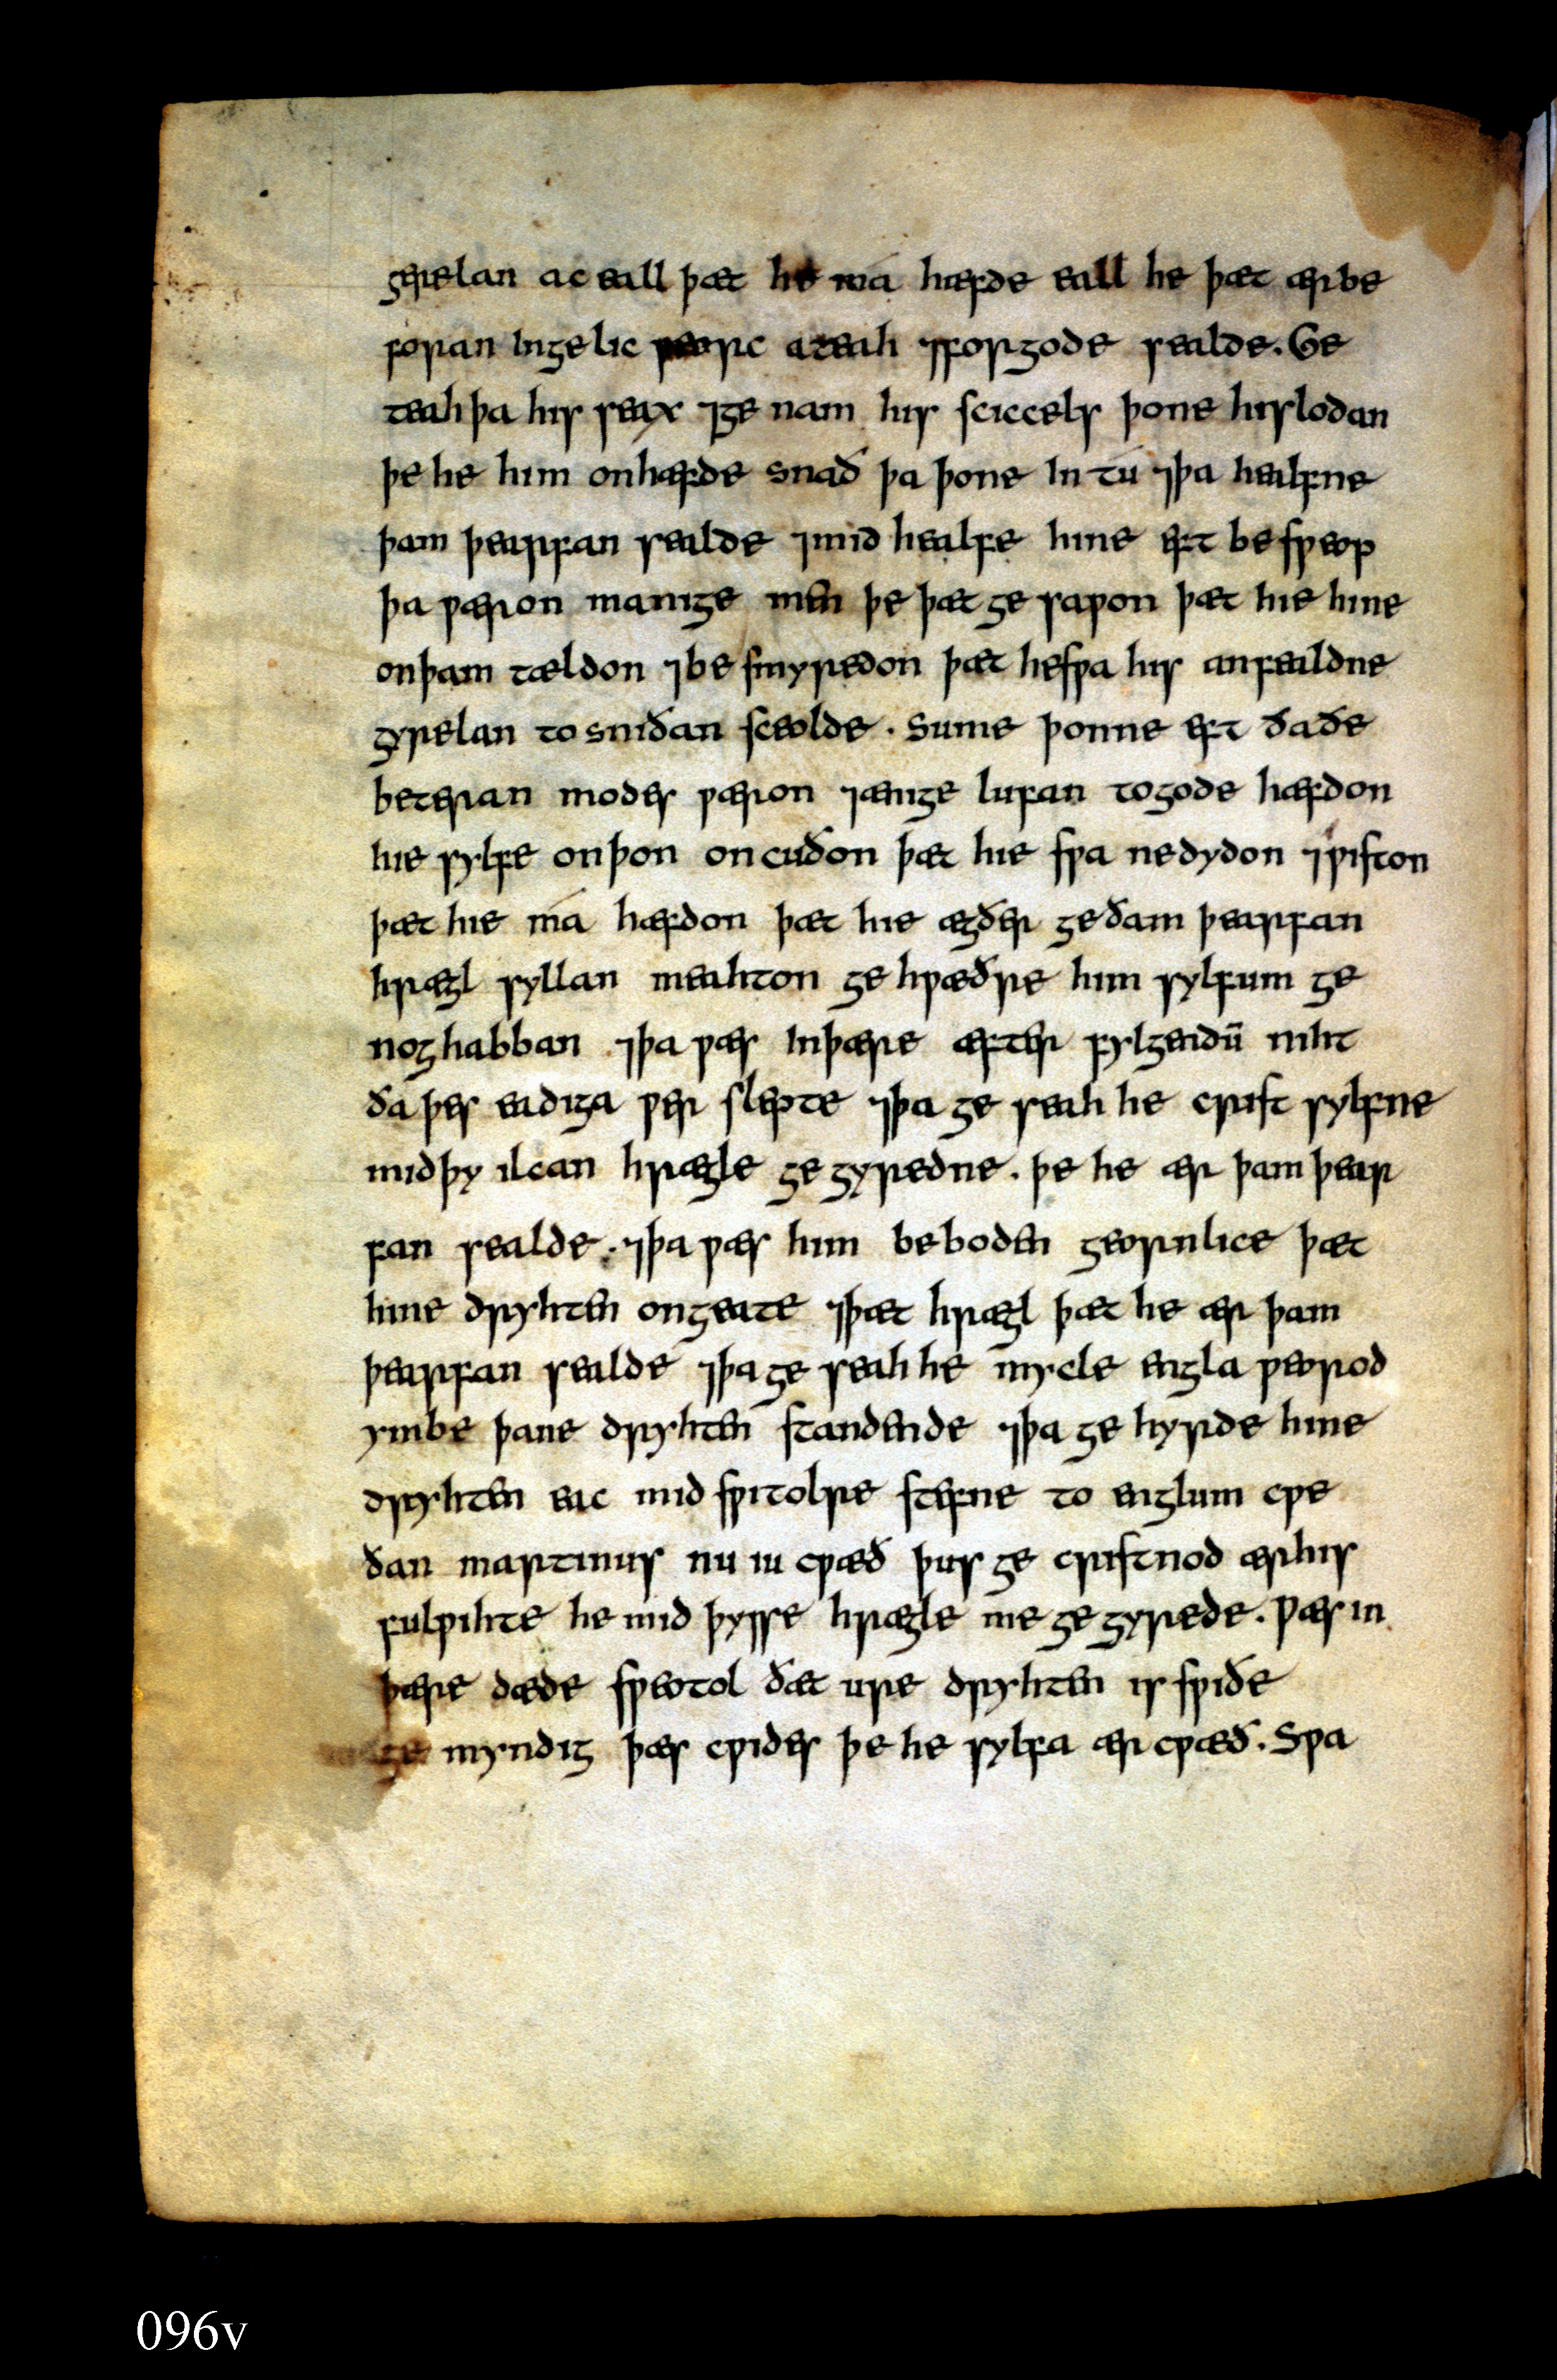 gerelan ac eall þæt he má hæfde eall he þæt ær be
foran in gelic ƿeorc ateah ⁊ for gode sealde. Ge
teah þa his seax ⁊ ge nam his sciccels þone hislodan
þe he him onhæfde snað þa þone in tú ⁊ þa healfne
þam þearfan sealde ⁊ mid healfe hine eft be sƿeop
þa ƿæron manige men þe þæt ge saƿon þæt hie hine
onþam tældon ⁊ be smyredon þæt he sƿa his anfealdne
gyrelan to sniðan sceolde. Sume þonne eft ða ðe
beteran modes ƿæron ⁊ ænige lufan to gode hæfdon
hie sylfe on þon on cuðon þæt hie sƿa ne dydon ⁊ ƿiston
þæt hie má hæfdon þæt hie ægðer ge ðam þearfan
hrægl syllan meahton ge hƿæðre him sylfum ge
nog habban ⁊ þa ƿæs in þære æfter fylgendū niht
ða þes eadiga ƿer slepte ⁊ þa ge seah he crist sylfne
mid þy ilcan hrægle ge gyredne. þe he ær þam þear
fan sealde. ⁊ þa ƿæs him be boden geornlice þæt
hine dryhten ongeate ⁊ þæt hrægl þæt he ær þam
þearfan sealde ⁊ þa ge seah he mycle engla ƿeorod
ymbe þane dryhten standende ⁊ þa ge hyrde hine
dryhten eac mid sƿitolre stefne to englum cƿe
ðan martinus nu iu cƿæð þus ge cristnod ær his
fulƿihte he mid þysse hrægle me ge gyrede. Ƿæs in
þære dæde sƿeotol ðæt ure dryhten is sƿiðe
ge myndig þæs cƿides þe he sylfa ær cƿæð. Sƿa
096v